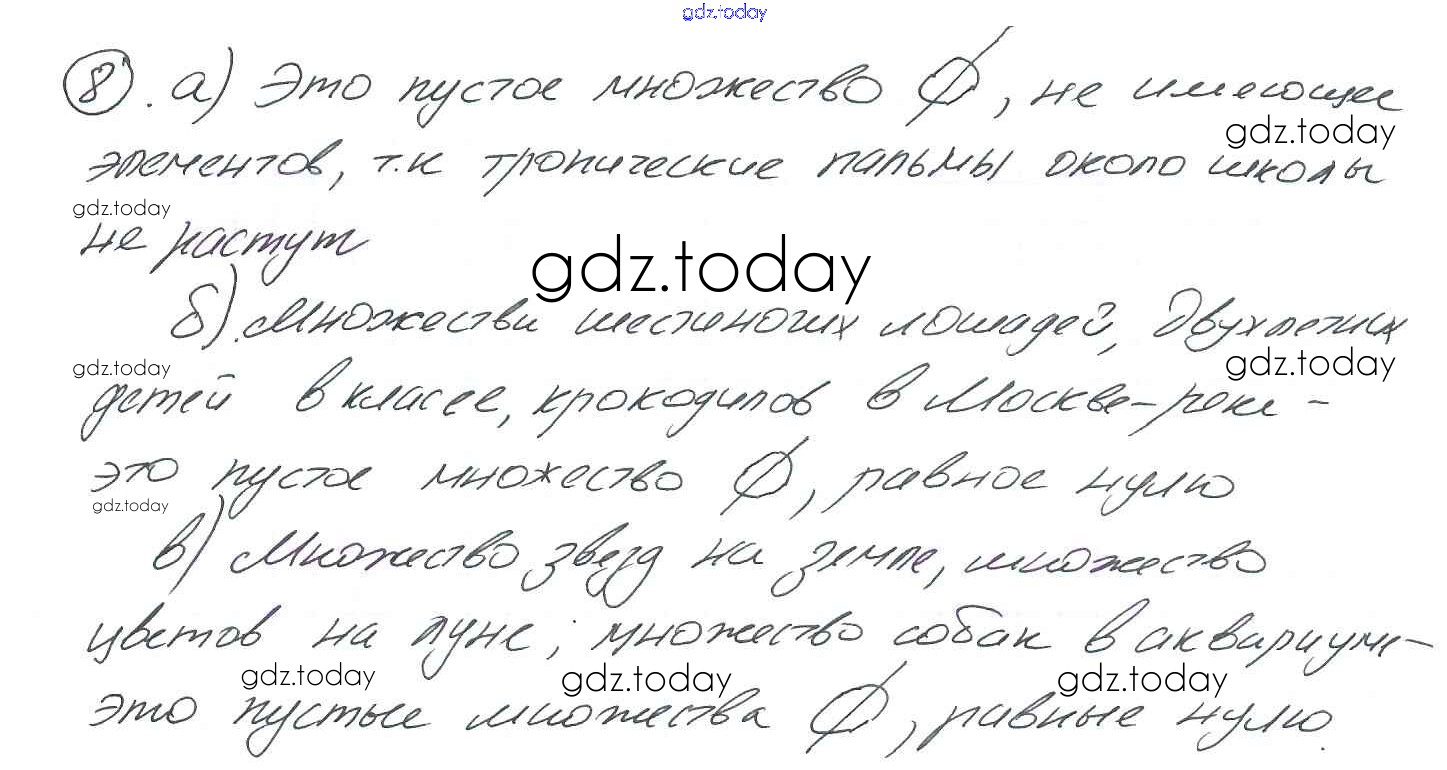 gdz.today
8. а) Это пустое множество Ø, не имеющее
gdz.today
элементов, т.к тропические пальмы около школы
gdz.today
не растут
gdz.today
б). Множества шестиногих лошадей, двухлетних
gdz.today
gdz.today
детей в классе, крокодилов в Москве-реке -
это пустое множество Ø, равное нулю
gdz.today
в) Множество звезд на земле, множество
цветов на луне; множество собак в аквариуме-
gdz.today gdz.today gdz.today
это пустые множества Ø, равные нулю.